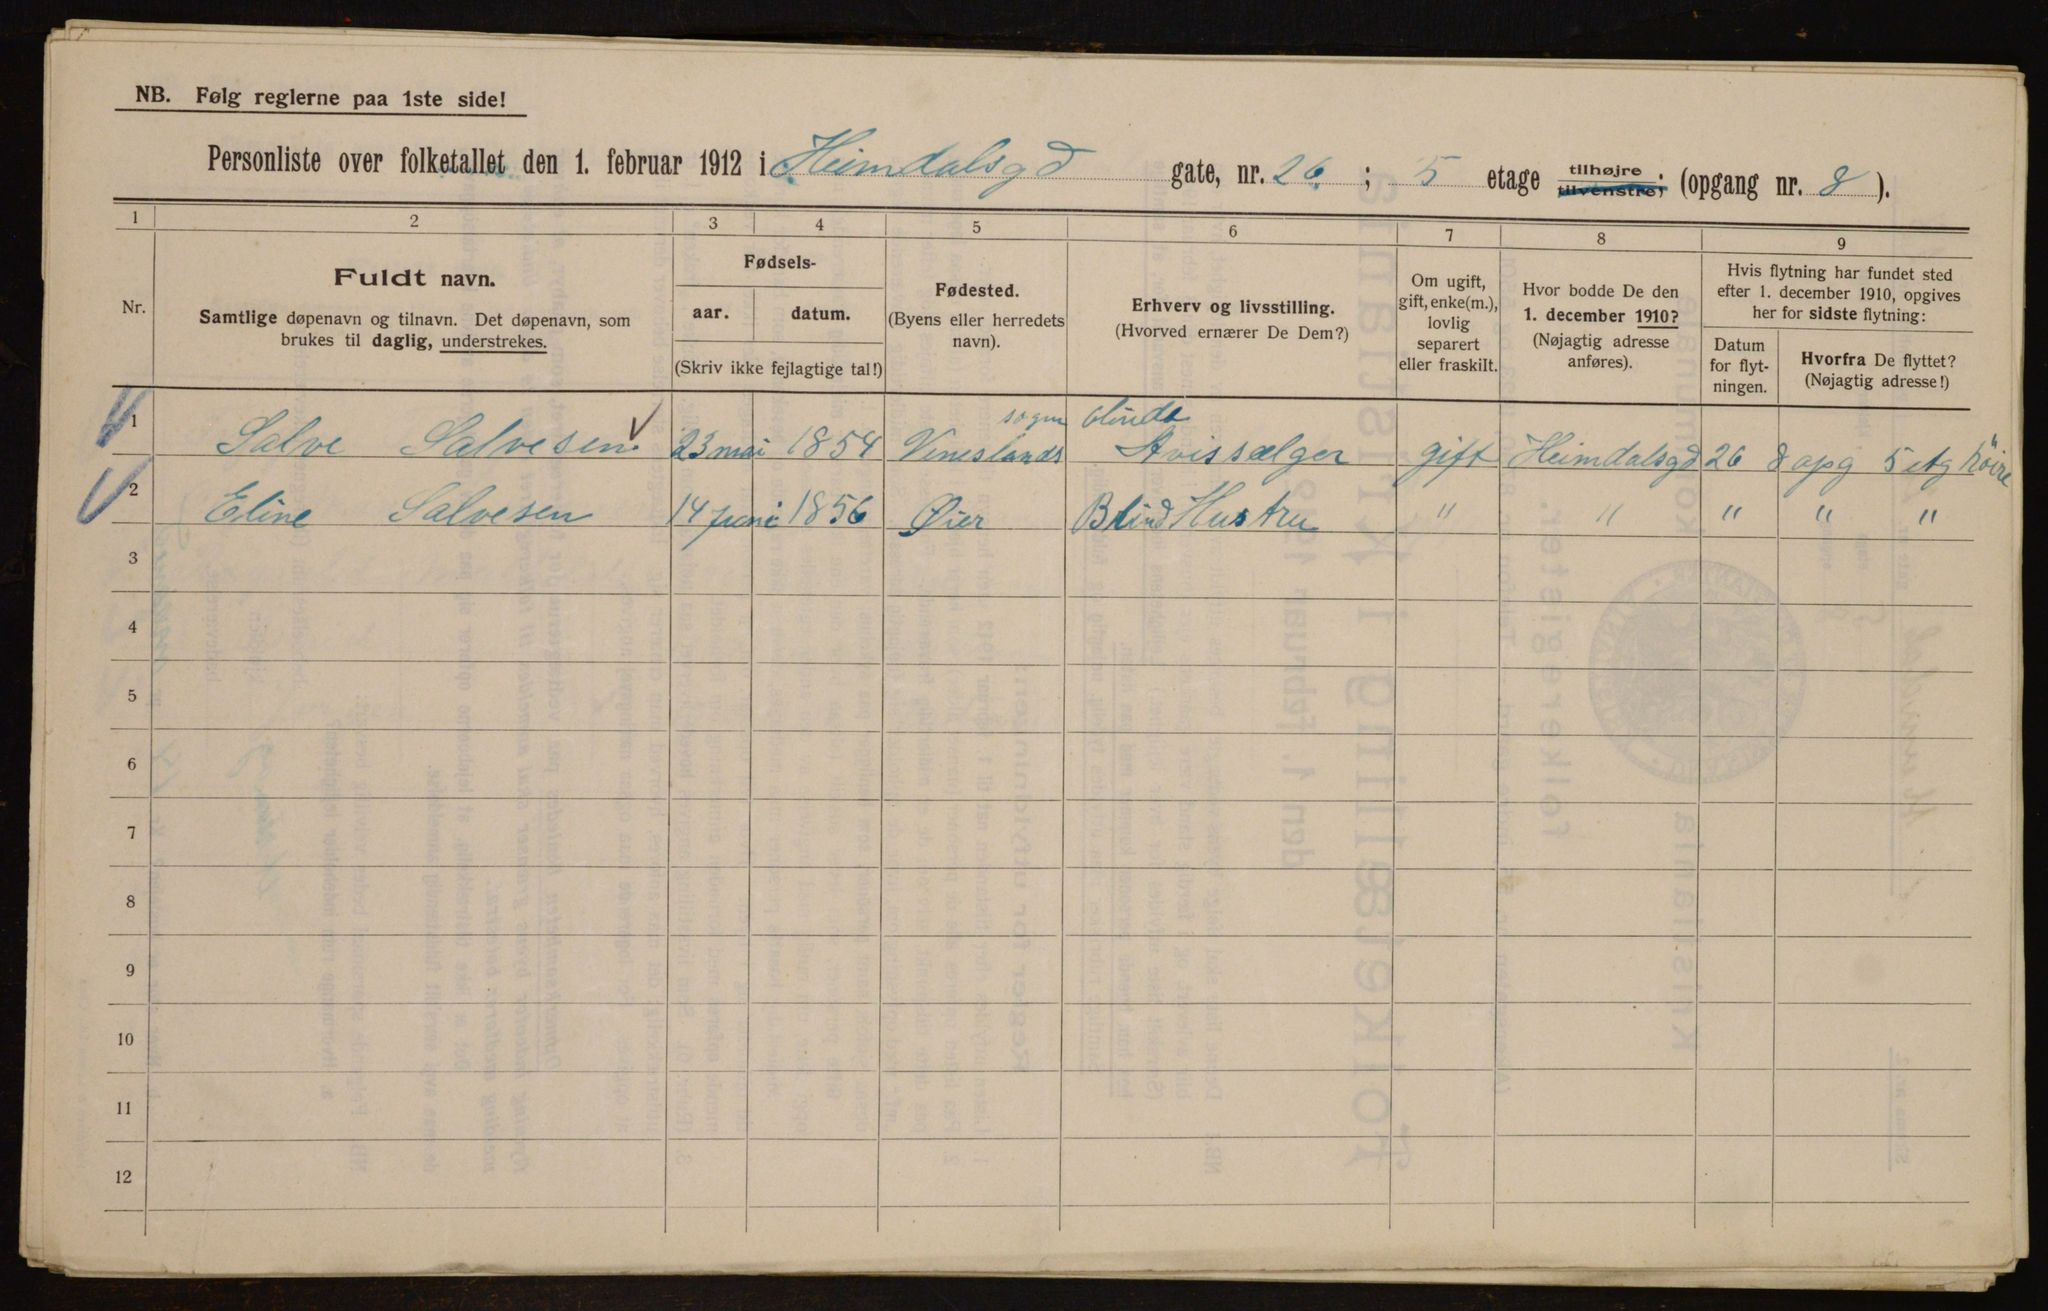 NB. Følg reglerne paa 1ste side!
Personliste over folketallet den 1. februar 1912 i Heimdalsgd gate, nr. 26 ; 5 etage tilhøjre tilvenstre; (opgang nr. 8 ).
1 2 3 4 5 6 7 8 9
Nr.
Fuldt navn.
Samtlige døpenavn og tilnavn. Det døpenavn, som
brukes til daglig, understrekes.
Fødsels-
aar. datum.
(Skriv ikke fejlagtige tal!)
Fødested.
(Byens eller herredets
navn).
Erhverv og livsstilling.
(Hvorved ernærer De Dem?)
Om ugift,
gift, enke(m.),
lovlig
separert
eller fraskilt.
Hvor bodde De den
1. december 1910?
(Nøjagtig adresse
anføres).
Hvis flytning har fundet sted
efter 1. december 1910, opgives
her for sidste flytning:
Datum
for flyt-
ningen.
Hvorfra De flyttet?
(Nøjagtig adresse!)
sogn blinde
1 Salve Salvesen 23 mai 1854 Vineslands Avissælger gift Heimdalsgd 26 8 opg 5 etg höire
2 Eline Salvesen 14 juni 1856 Øier Blind Hustru " " " " "
3
4
5
6
7
8
9
10
11
12